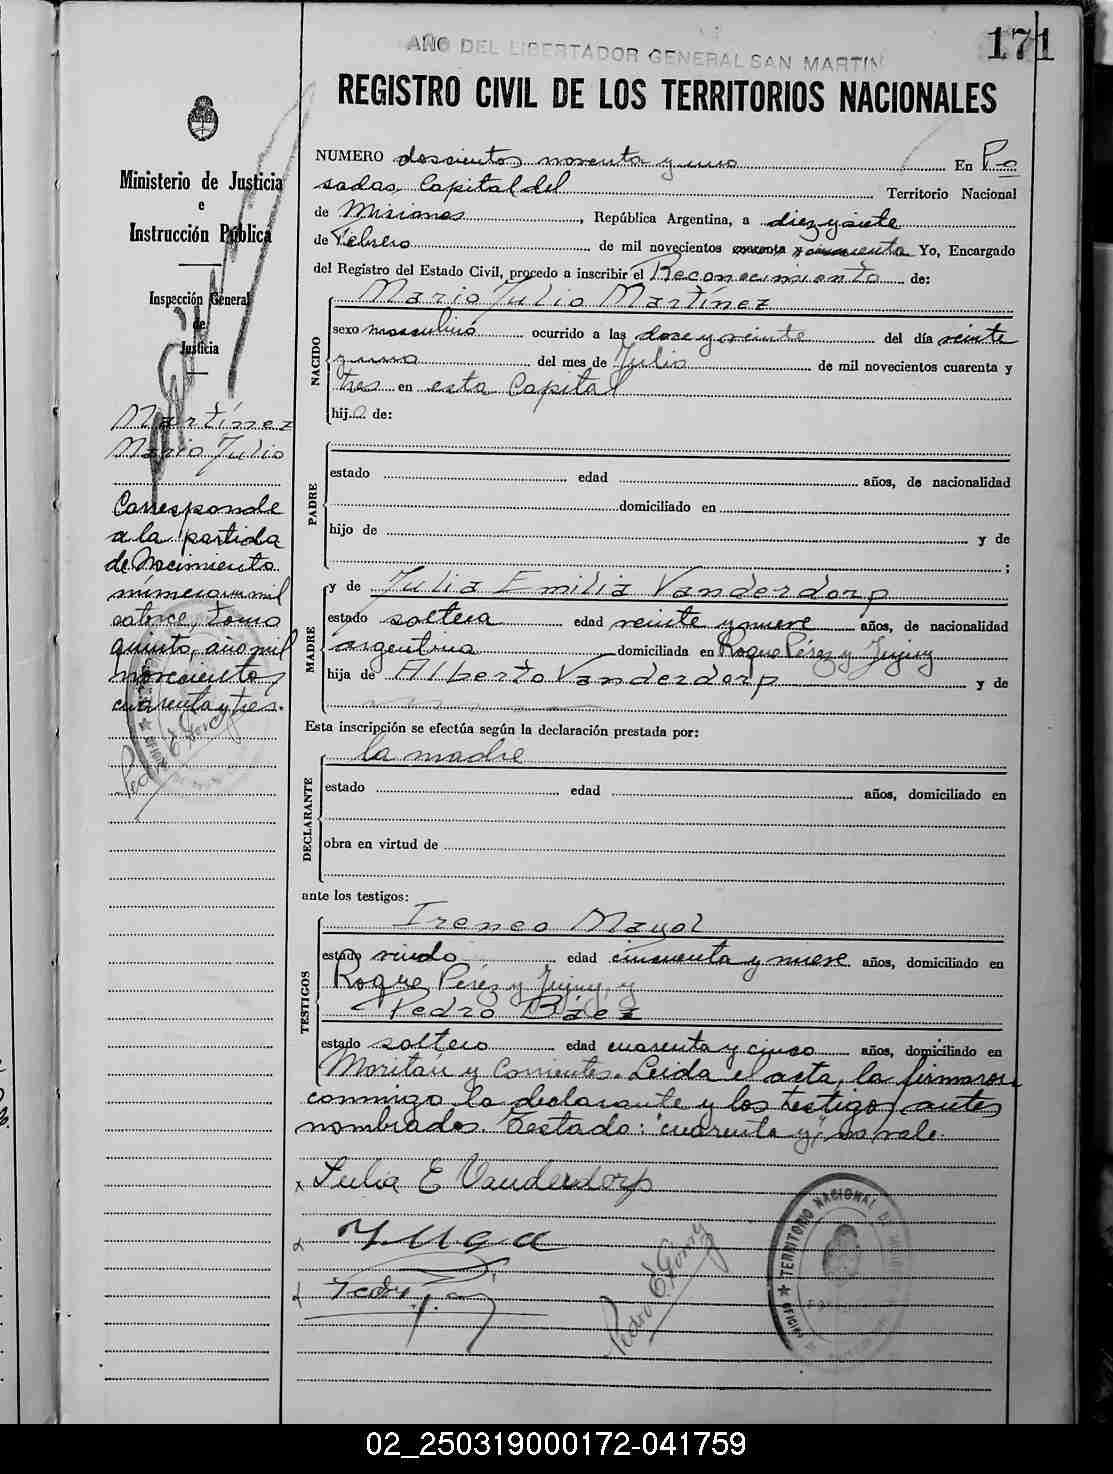 171
AÑO DEL LIBERTADOR GENERAL SAN MARTIN
REGISTRO CIVIL DE LOS TERRITORIOS NACIONALES
Ministerio de Justicia
e
Instrucción Pública
Inspección General
de
Justicia
Martínez
Mario Julio
Corresponde
a la partida
de Nacimiento
número mil
catorce, tomo
quinto, año mil
novecientos
cuarenta y tres.
Pedro E Gomez
NUMERO doscientos noventa y uno En Po
sadas Capital del Territorio Nacional
de Misiones, República Argentina, a diez y siete
de Febrero de mil novecientos cuarenta y cincuenta Yo, Encargado
del Registro del Estado Civil, procedo a inscribir el Reconocimiento de:
NACIDO
Mario Julio Martínez
sexo masculino ocurrido a las doce y veinte del día veinte
y uno del mes de Julio de mil novecientos cuarenta y
tres en esta Capital
hijo de:
PADRE
estado edad años, de nacionalidad
domiciliado en
hijo de y de
;
MADRE
y de Julia Emilia Vanderdorp
estado soltera edad veinte y nueve años, de nacionalidad
argentina domiciliada en Roque Pérez y Jujuy
hija de Alberto Vanderdorp y de
Esta inscripción se efectúa según la declaración prestada por:
DECLARANTE
la madre
estado edad años, domiciliado en
obra en virtud de
ante los testigos:
TESTIGOS
Ireneo Mayol
estado viudo edad cincuenta y nueve años, domiciliado en
Roque Pérez y Jujuy y
Pedro Báez
estado soltero edad cuarenta y cinco años, domiciliado en
Moritán y Corrientes. Leida el acta, la firmaron
conmigo la declarante y los testigos antes
nombrados. Testado: "cuarenta y", no vale.
x Julia E Vanderdorp
Pedro E Gomez
TERRITORIO NACIONAL DE
02_250319000172-041759